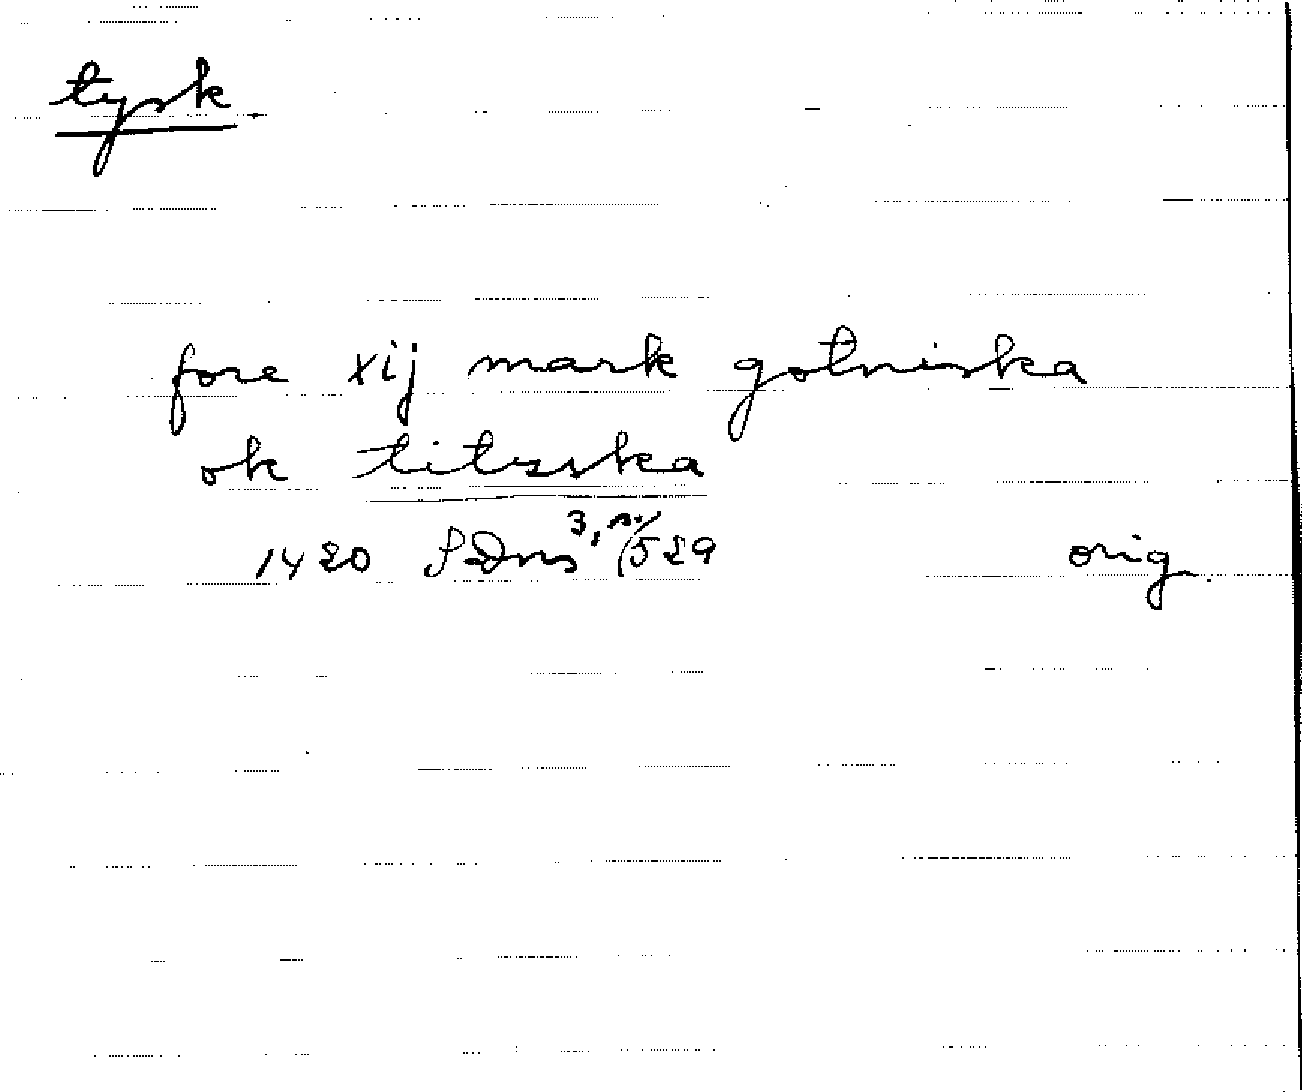 tysk
fore xij mark gotniska
ok titzska
1420 SDns 3, 529
orig.